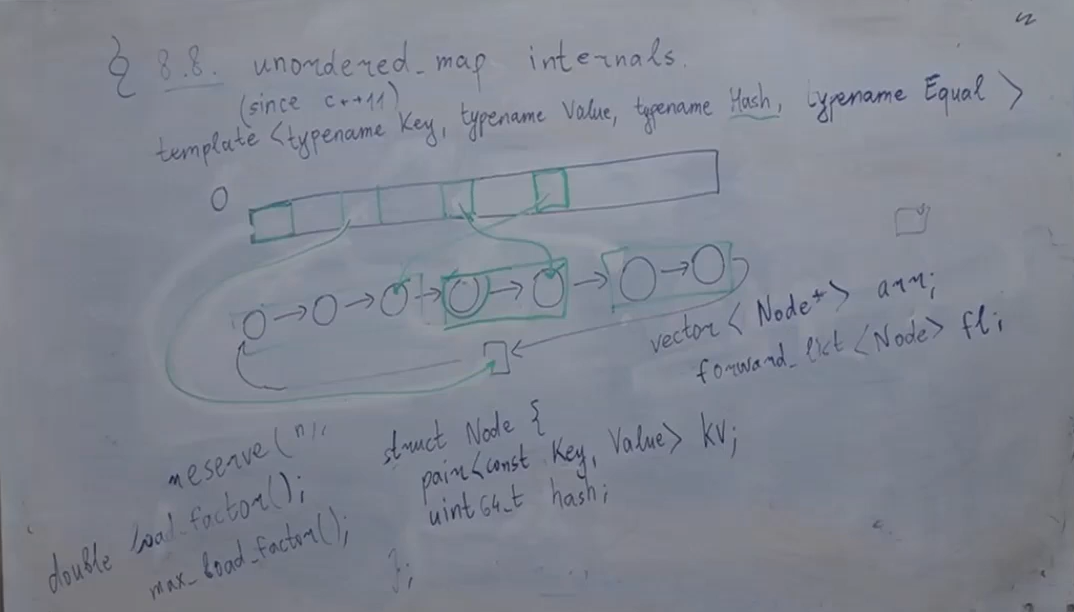 § 8.8. unordered_map internals.
(since c++11)
template <typename Key, typename Value, typename Hash, typename Equal>
0
vector < Node*> arr;
forward_list <Node> fl;
reserve(n);
double load_factor();
max_load_factor();
struct Node {
pair<const Key, Value> kv;
uint64_t hash;
};